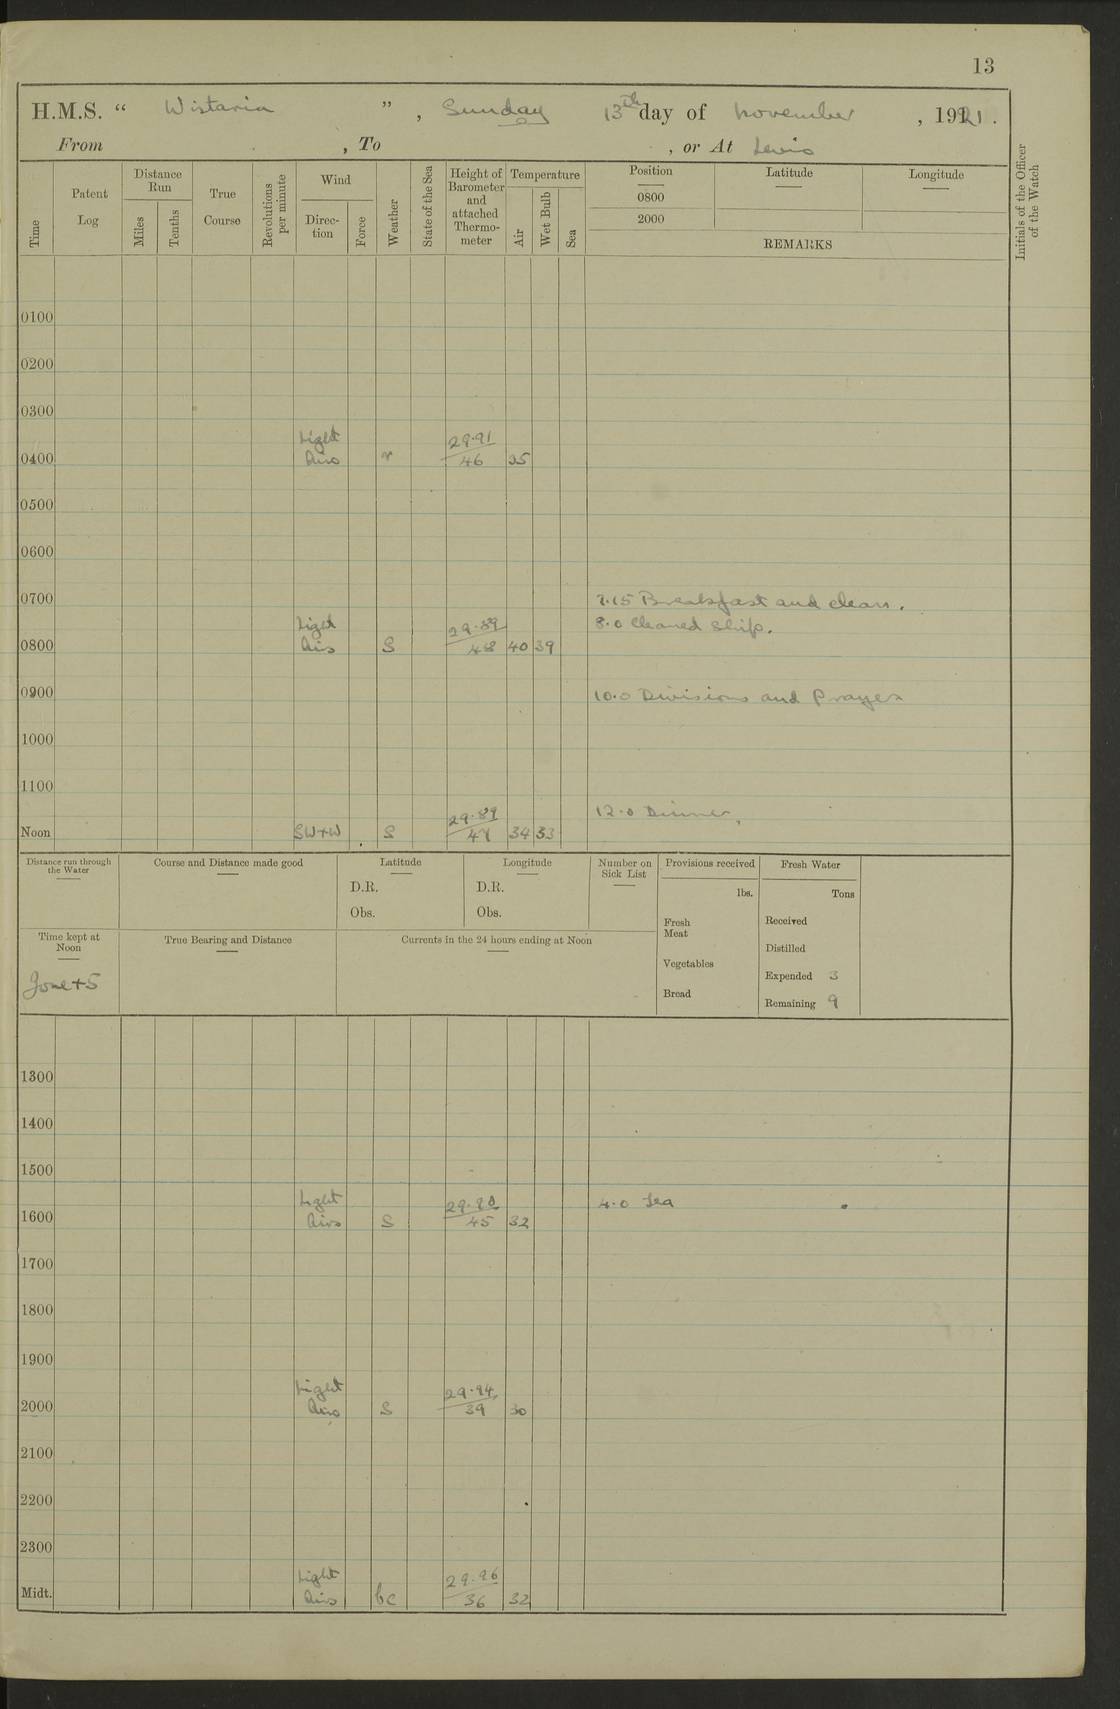 13
H.M.S. “ Wistaria ”, Sunday 13th day of November, 1921.
From , To , or At Lewis
Time
Patent Log
Distance Run
Miles
Tenths
True Course
Revolutions per minute
Wind
Direc-tion
Force
Weather
State of the Sea
Height of Barometer and attached Thermo-meter
Temperature
Air
Wet Bulb
Sea
Position
0800
2000
Latitude
Longitude
REMARKS
Initials of the Officer of the Watch
0100
0200
0300
Light 29.91
0400 Airs r 46 35
0500
0600
0700 7.15 Breakfast and clean.
Light 29.89 8.0 Cleaned Ship.
0800 Airs S 48 40 39
0900 10.0 Divisions and Prayers
1000
1100
29.89 12.0 Dinner,
Noon SW+W S 48 34 33
Distance run through the Water
Course and Distance made good
Latitude
D.R.
Obs.
Longitude
D.R.
Obs.
Number on Sick List
Provisions received
lbs.
Fresh Meat
Vegetables
Bread
Fresh Water
Tons
Received
Distilled
Expended 3
Remaining 9
Time kept at Noon
Zone+5
True Bearing and Distance
Currents in the 24 hours ending at Noon
1300
1400
1500
Light 29.90 4.0 Tea
1600 Airs S 45 32
1700
1800
1900
Light 29.94
2000 Airs S 39 30
2100
2200
2300
Light 29.96
Midt. Airs bc 36 32